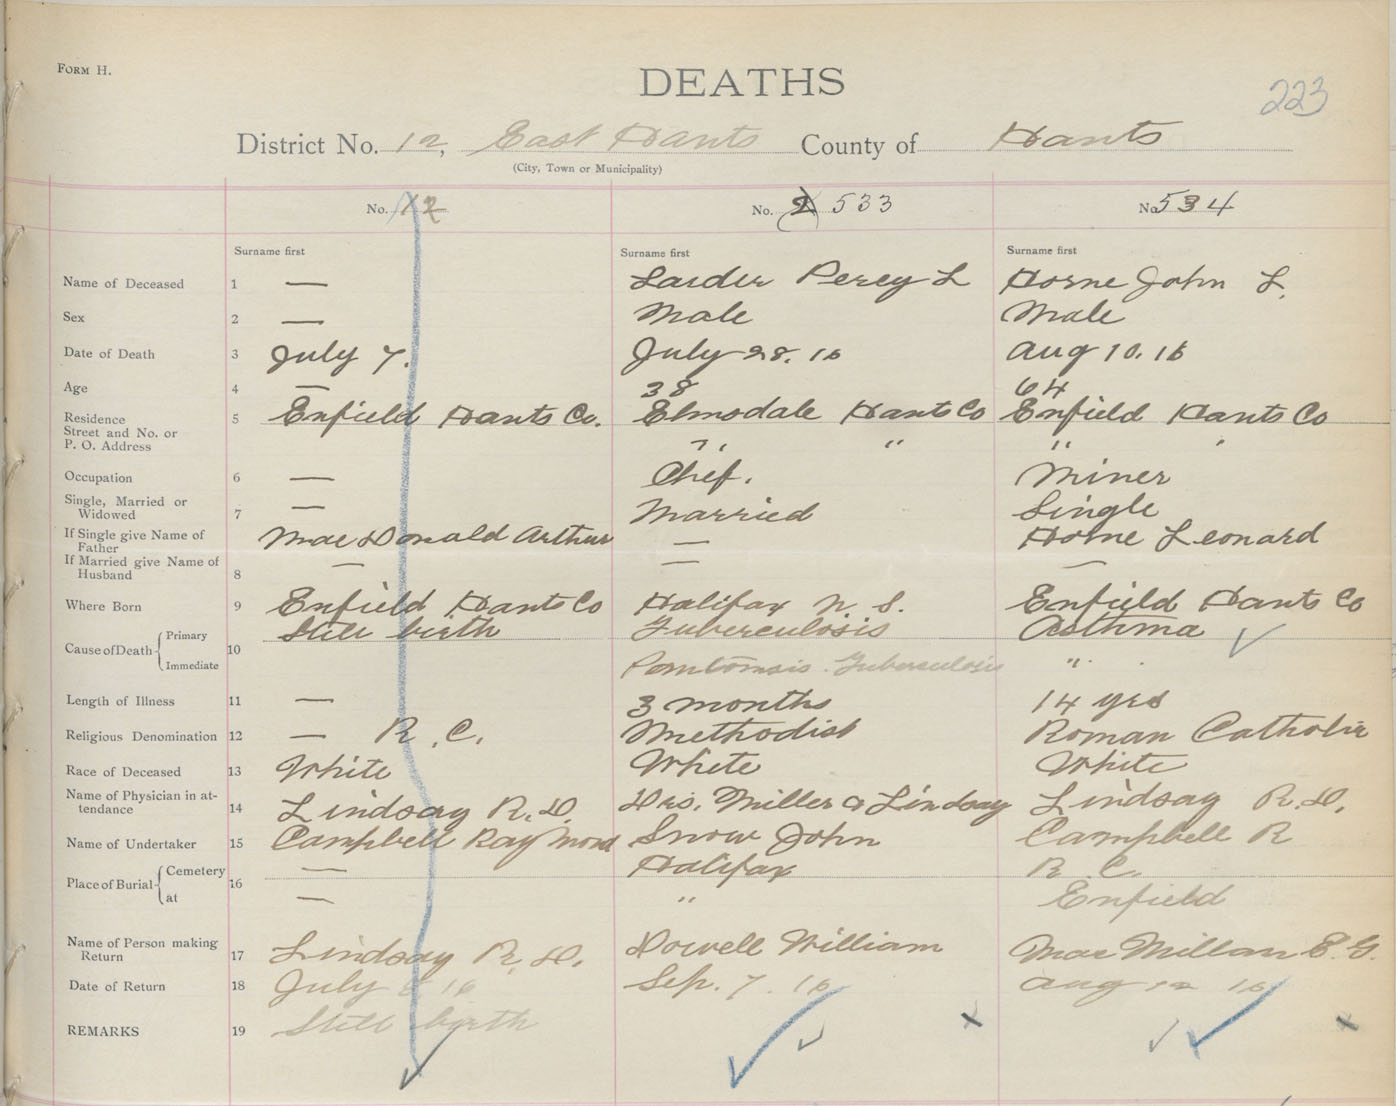 FORM H.
DEATHS
223
District No. 12, East Hants County of Hants
(City, Town or Municipality)
No. 12 No. 2 533 No. 534
Surname first Surname first Surname first
Name of Deceased 1 — Laider Percy L Horne John L.
Sex 2 — Male Male
Date of Death 3 July 7. July 28. 16 Aug 10. 16
Age 4 — 38 64
Residence Street and No. or P. O. Address 5 Enfield Hants Co. Elmsdale Hants Co Enfield Hants Co
" " " "
Occupation 6 — Chef. Miner
Single, Married or Widowed 7 — Married Single
If Single give Name of Father MacDonald Arthur — Horne Leonard
If Married give Name of Husband 8 — — —
Where Born 9 Enfield Hants Co Halifax N. S. Enfield Hants Co
Cause of Death Primary 10 Still birth Tuberculosis Asthma
Immediate Tuberculosis "
Length of Illness 11 — 3 months 14 yrs
Religious Denomination 12 — R. C. Methodist Roman Catholic
Race of Deceased 13 White White White
Name of Physician in attendance 14 Lindsay R. D. Drs. Miller & Lindsay Lindsay R. D.
Name of Undertaker 15 Campbell Raymond Snow John Campbell R
Place of Burial Cemetery 16 — Halifax R. C.
at — " Enfield
Name of Person making Return 17 Lindsay R. D. Dowell William MacMillan E. G.
Date of Return 18 July 16 Sep. 7. 16 Aug 12 16
REMARKS 19 Still birth